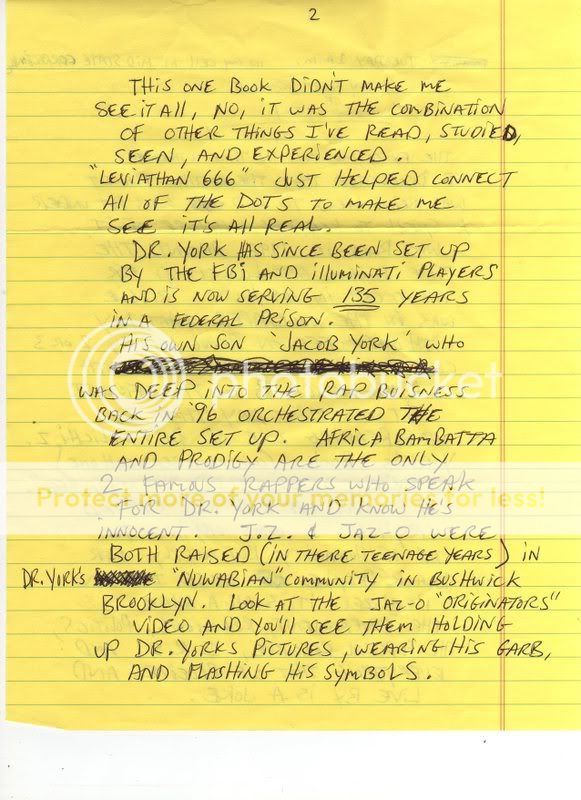 2
THIS ONE BOOK DIDN'T MAKE ME
SEE IT ALL, NO, IT WAS THE COMBINATION
OF OTHER THINGS I'VE READ, STUDIED,
SEEN, AND EXPERIENCED.
"LEVIATHAN 666" JUST HELPED CONNECT
ALL OF THE DOTS TO MAKE ME
SEE IT'S ALL REAL.
DR. YORK HAS SINCE BEEN SET UP
BY THE FBI AND ILLUMINATI PLAYERS
AND IS NOW SERVING 135 YEARS
IN A FEDERAL PRISON.
HIS OWN SON 'JACOB YORK' WHO
WAS DEEP INTO THE RAP BUISNESS
BACK IN '96 ORCHESTRATED THE
ENTIRE SET UP. AFRICA BAMBATTA
AND PRODIGY ARE THE ONLY
2 FAMOUS RAPPERS WHO SPEAK
FOR DR. YORK AND KNOW HE'S
INNOCENT. J.Z. & JAZ-O WERE
BOTH RAISED (IN THERE TEENAGE YEARS) IN
DR. YORK'S "NUWABIAN" COMMUNITY IN BUSHWICK
BROOKLYN. LOOK AT THE JAZ-O "ORIGINATORS"
VIDEO AND YOU'LL SEE THEM HOLDING
UP DR. YORKS PICTURES, WEARING HIS GARB,
AND FLASHING HIS SYMBOLS.
photobucket
Protect more of your memories for less!